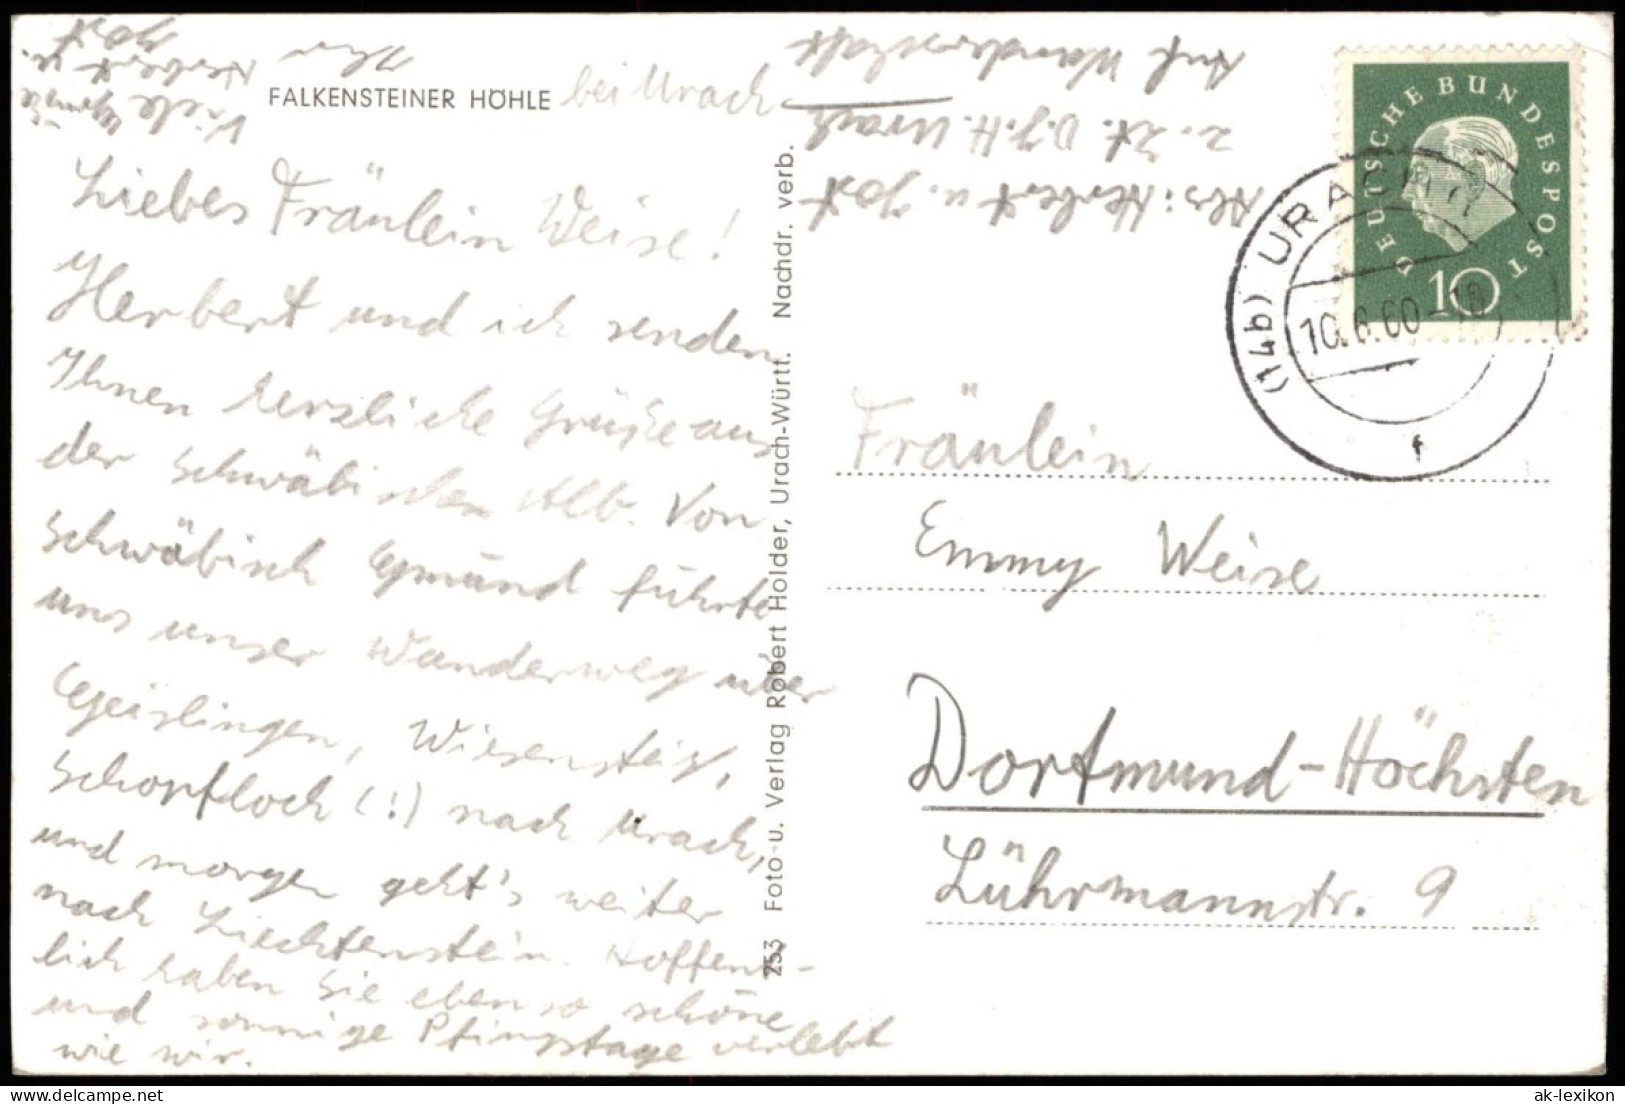 FALKENSTEINER HÖHLE bei Urach
Liebes Fräulein Weise!
Herbert und ich senden
Ihnen herzliche Grüße aus
der schwäbischen Alb. Von
Schwäbisch Gmünd führte
uns unser Wanderweg über
Geislingen, Wiesensteig,
Schopfloch (!) nach Urach,
und morgen geht's weiter
nach Liechtenstein. Hoffent-
lich haben Sie ebenso schöne
und sonnige Pfingsttage verlebt
wie wir.
Viele Grüße
Ihr
Herbert u.
Jost
253 Foto u. Verlag Robert Holder, Urach-Württ. Nachdr. verb.
Abs.: Herbert u. Jost
z. Zt. D.J.H. Urach
Auf Wanderschaft
DEUTSCHE BUNDESPOST
10
(14b) URACH
10.6.60-18
f
Fräulein
Emmy Weise
Dortmund-Höchsten
Lührmannstr. 9
ak-lexikon